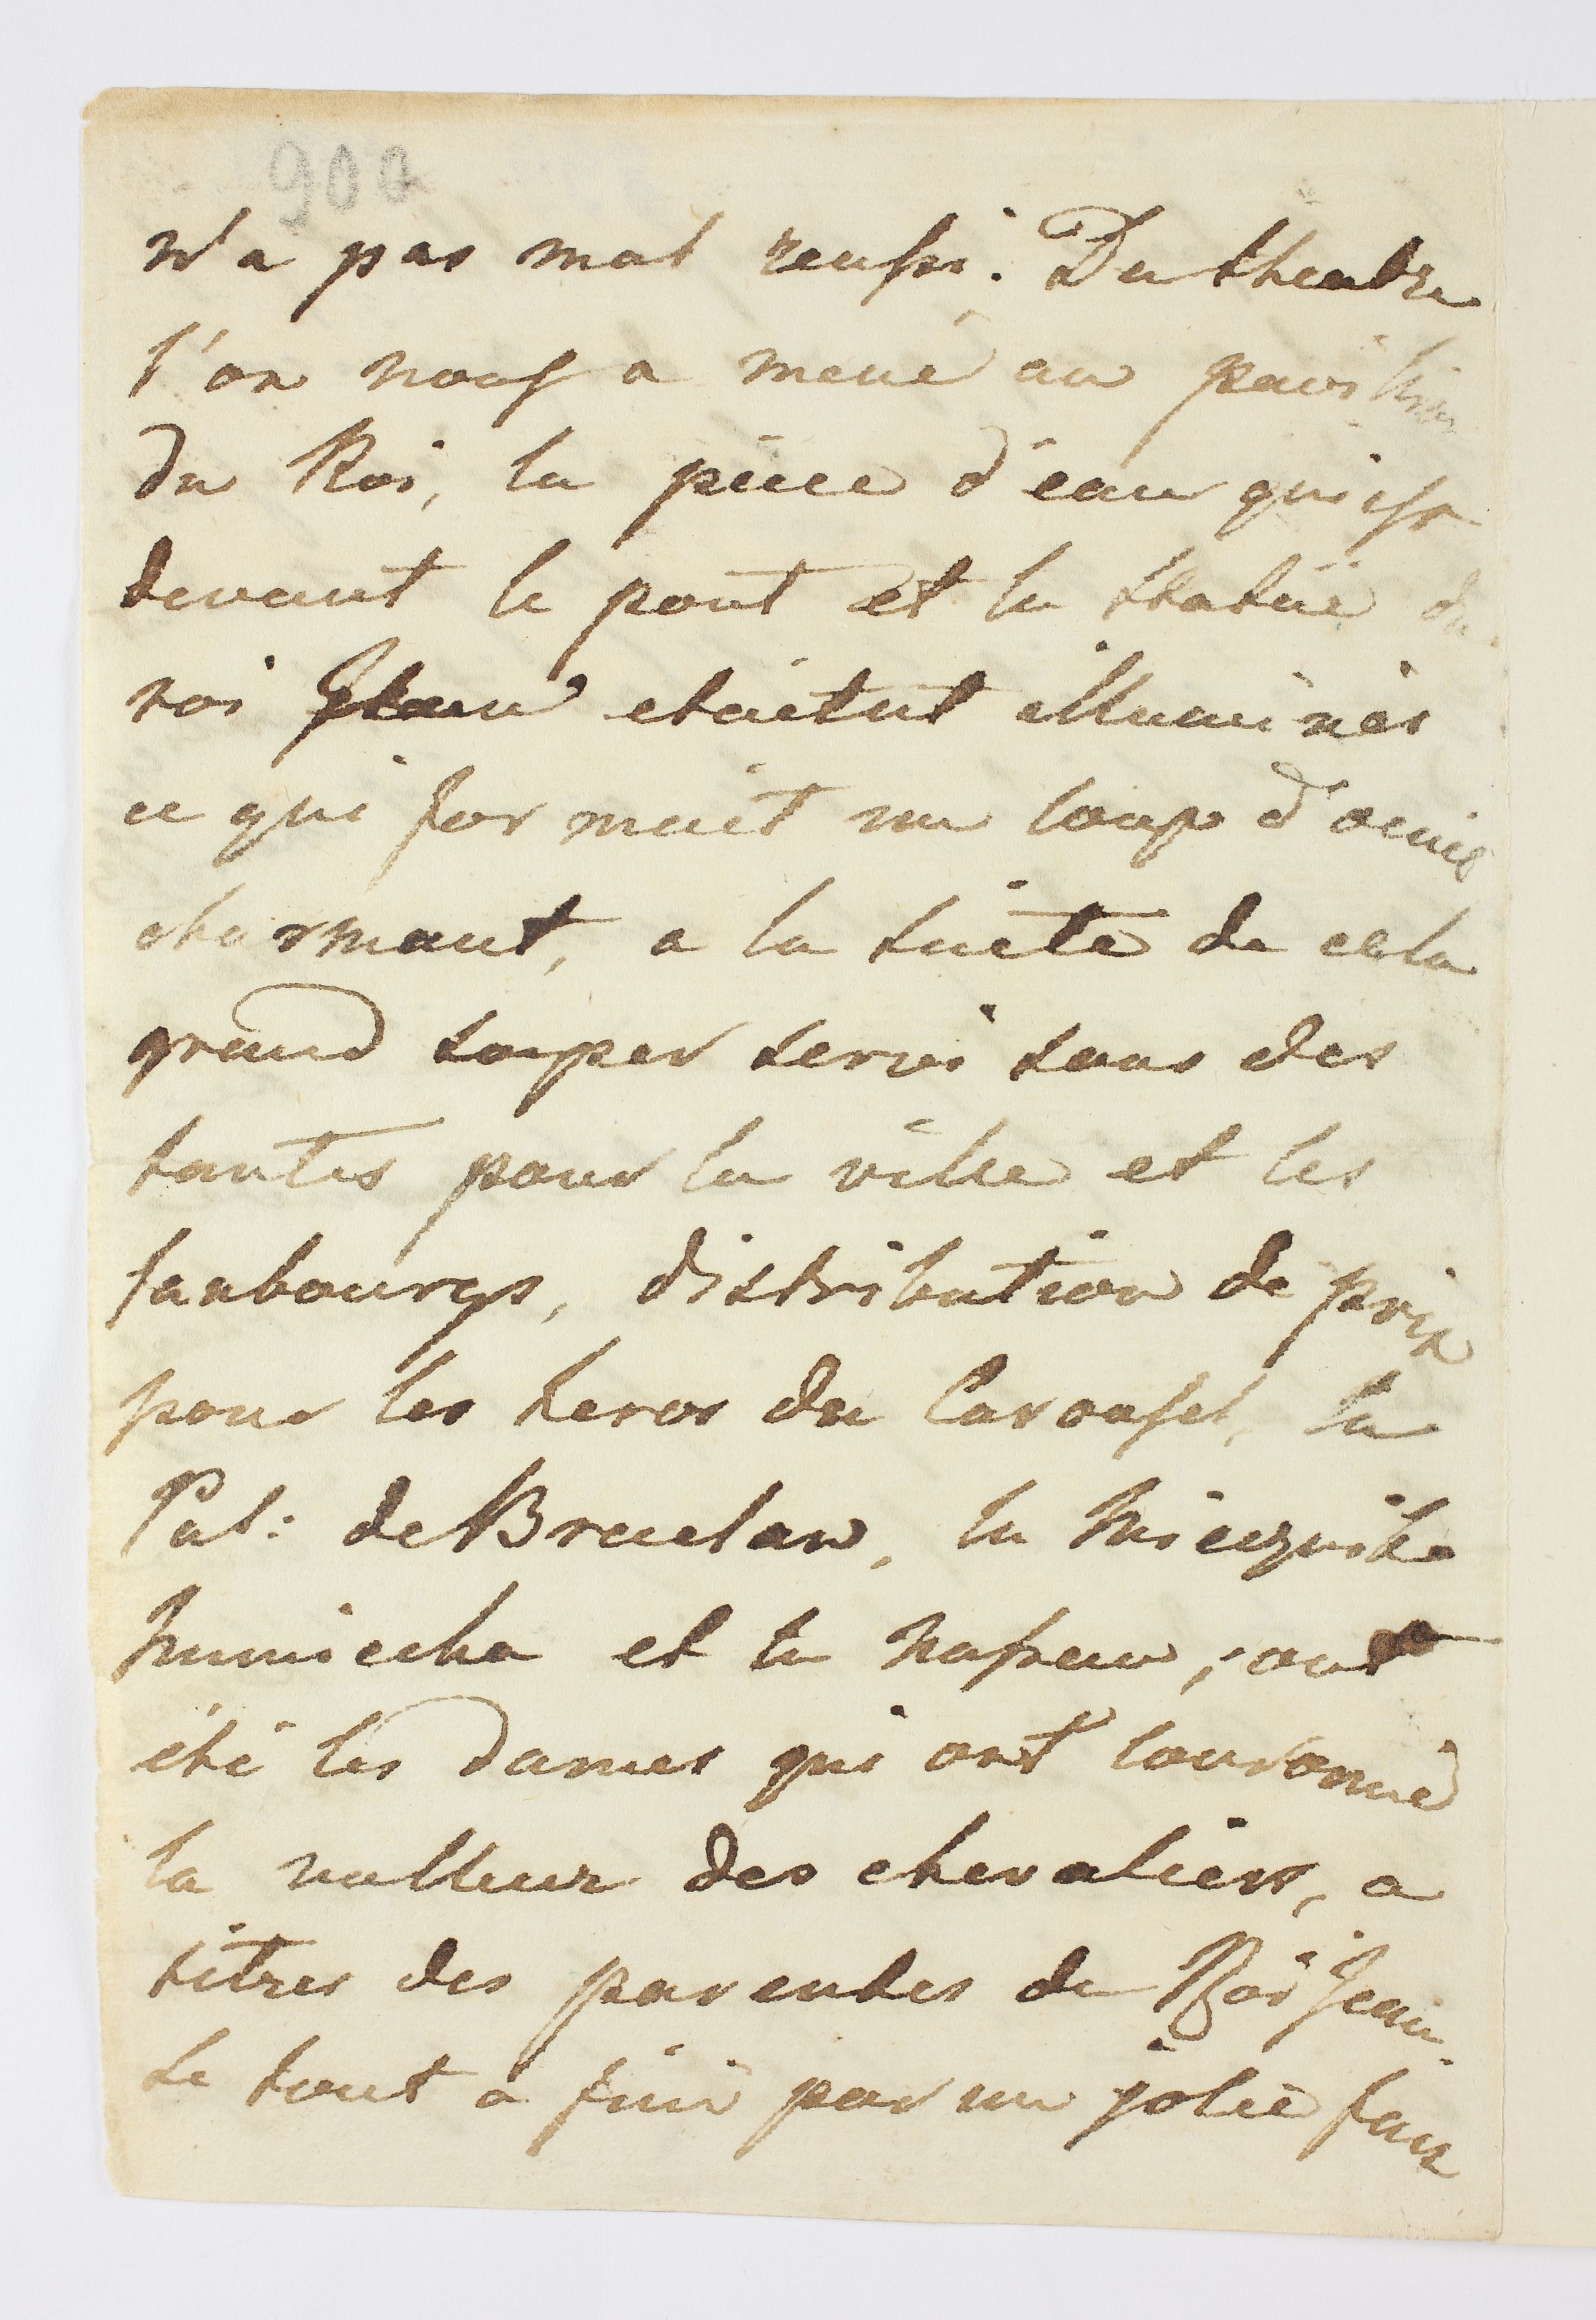 900
n'a pas mal reussi. Du theatre
l'on nous a mené au pavillion
du Roi, la piece d'eau qui est
devant le pont et la statüe du
roi Jean etaient illuminés
ce qui formait un coup d'oeuil
charmant, a la suite de cela
grand souper servi sous des
tantes pour la ville et les
faubourgs, distribution de prix
pour les heros du Carousel, la
Pal: de Braclaw, la
et la ont
été les dames qui ont couronné
la valleur des chevaliers, a
titres des parentes de Roi Jean.
Le tout a fini par un jolie faux